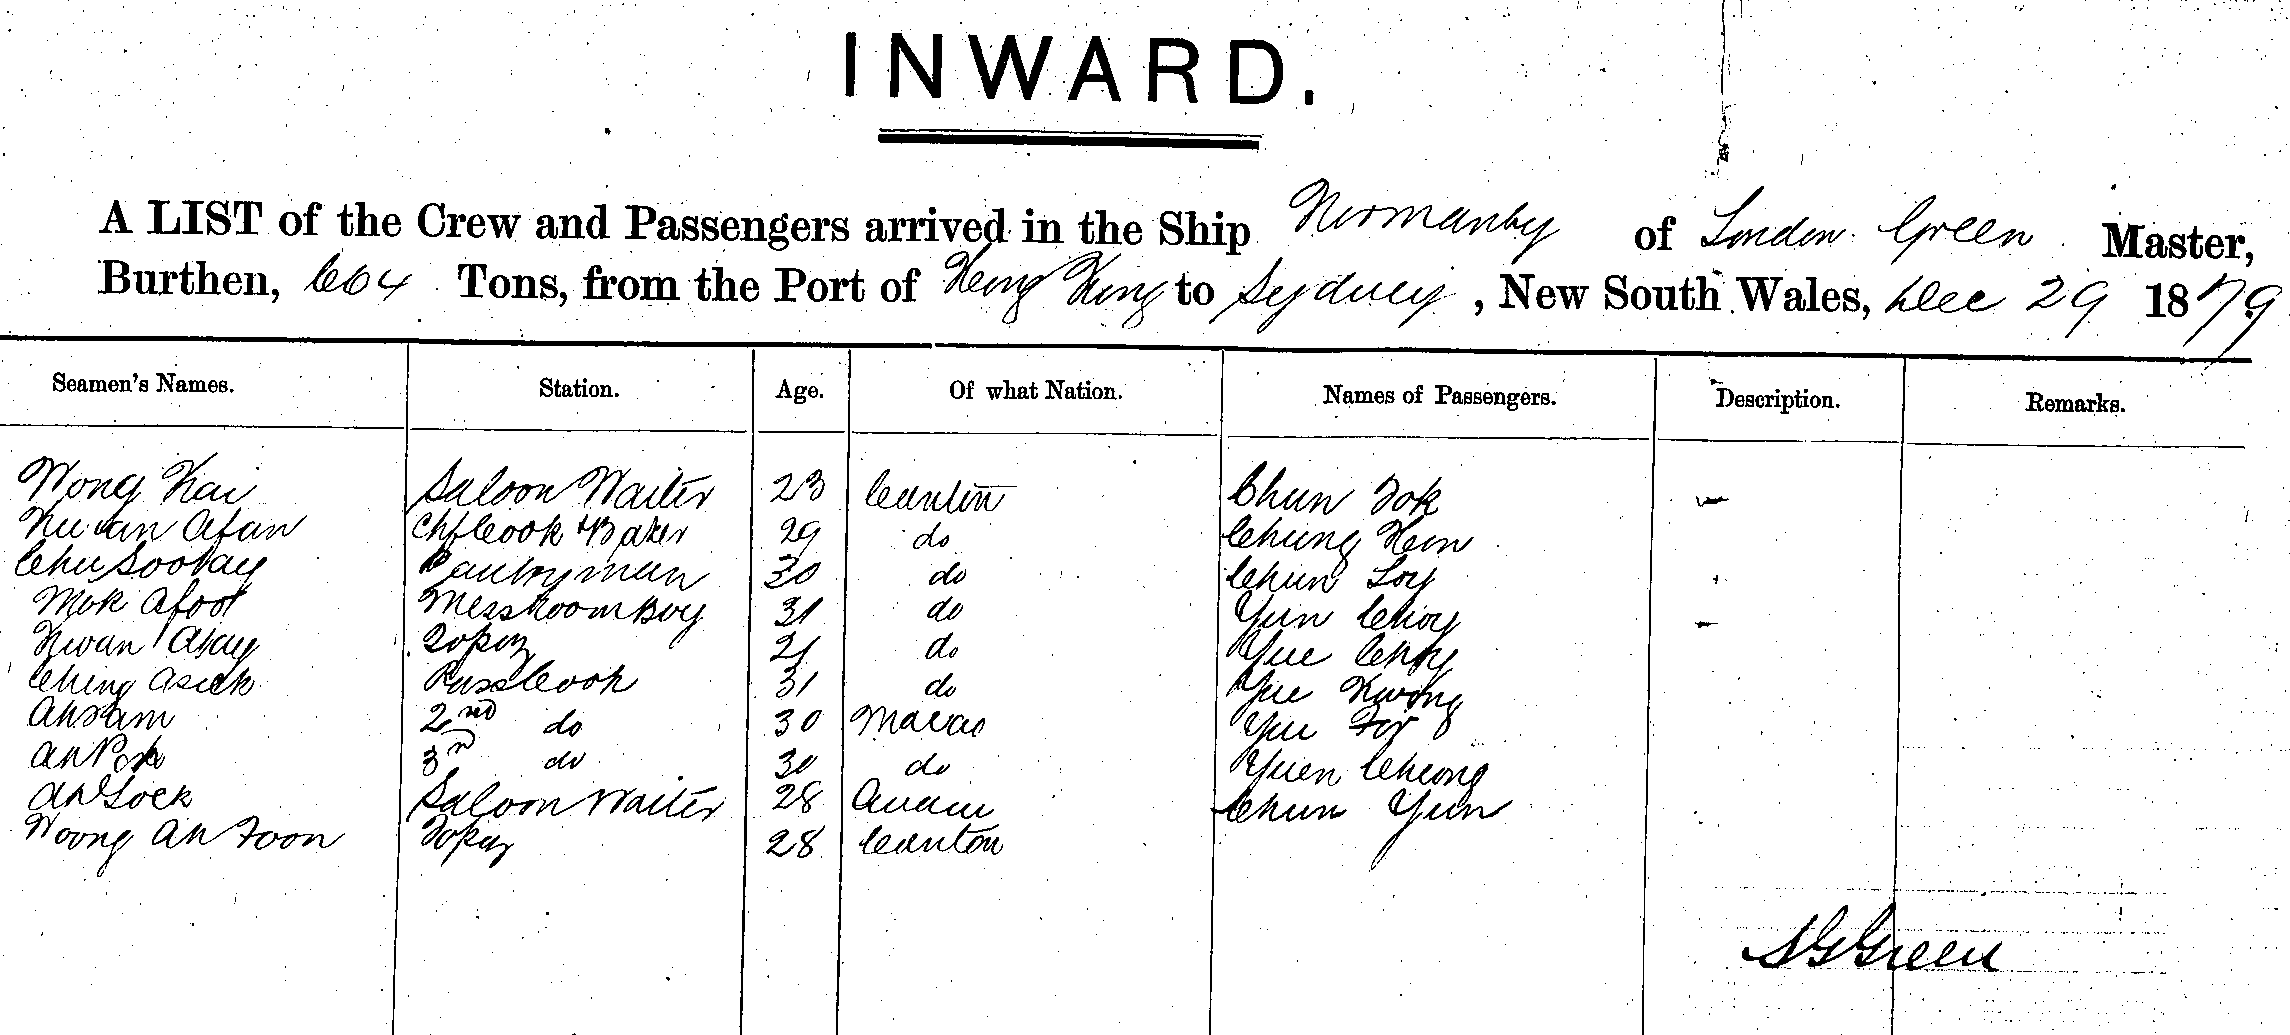 INWARD.
A LIST of the Crew and Passengers arrived in the Ship Normanby of London Green Master,
Burthen, 664 Tons, from the Port of Hong Kong to Sydney, New South Wales, Dec 29 1879
Seamen's Names. Station. Age. Of what Nation. Names of Passengers. Description. Remarks.
Wong Kai Saloon Waiter 23 Canton Chun Tok
Afan Chf Cook & Baker 29 do Chung
Pantryman 30 do Chun Loy
Mok Afoot Messroom Boy 31 do Yun Choy
Kwan Topaz 21 do Yue Choy
Ching Asick Pass Cook 31 do Yue Kwong
Ah Sam 2nd do 30 Macao Yue Foy
3rd do 30 do Yuen Cheong
Ah Sock Saloon Waiter 28 Anam Chun Yun
Woong Ah Foon Topaz 28 Canton
Green